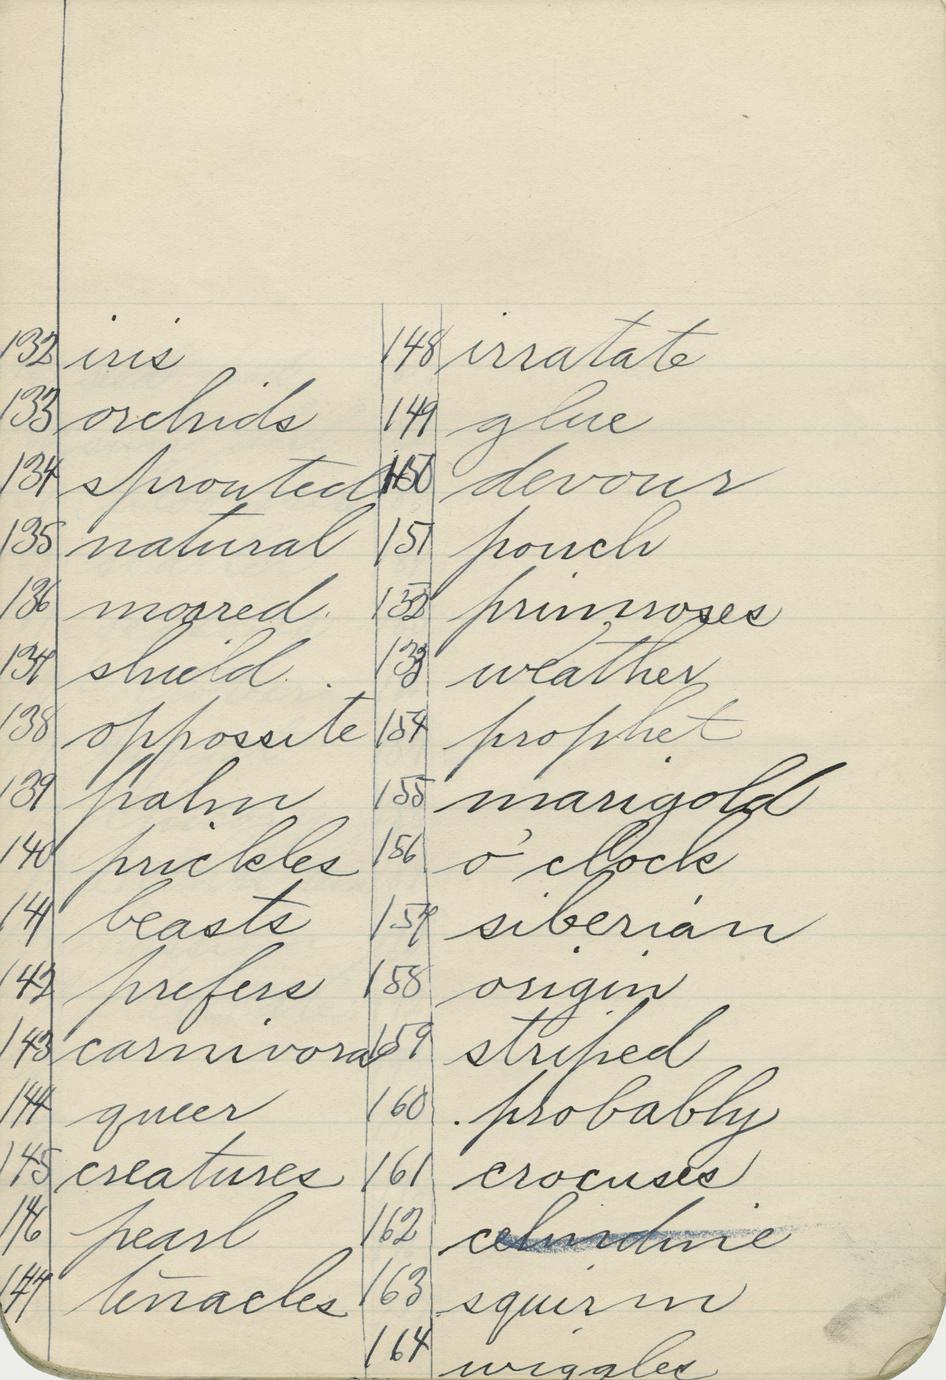 132 iris
133 orchids
134 sprouted
135 natural
136 moored.
137 shield.
138 oppossite
139 palm
140 prickles
141 beasts
142 prefers
143 carnivora
144 queer
145 creatures
146 pearl
147 tenacles
148 irratate
149 glue
150 devour
151 pouch
152 primroses
153 weather
154 prophet
155 marigold
156 o'clock
157 siberian
158 origin
159 striped
160 probably
161 crocuses
162 celindine
163 squirm
164 wiggles